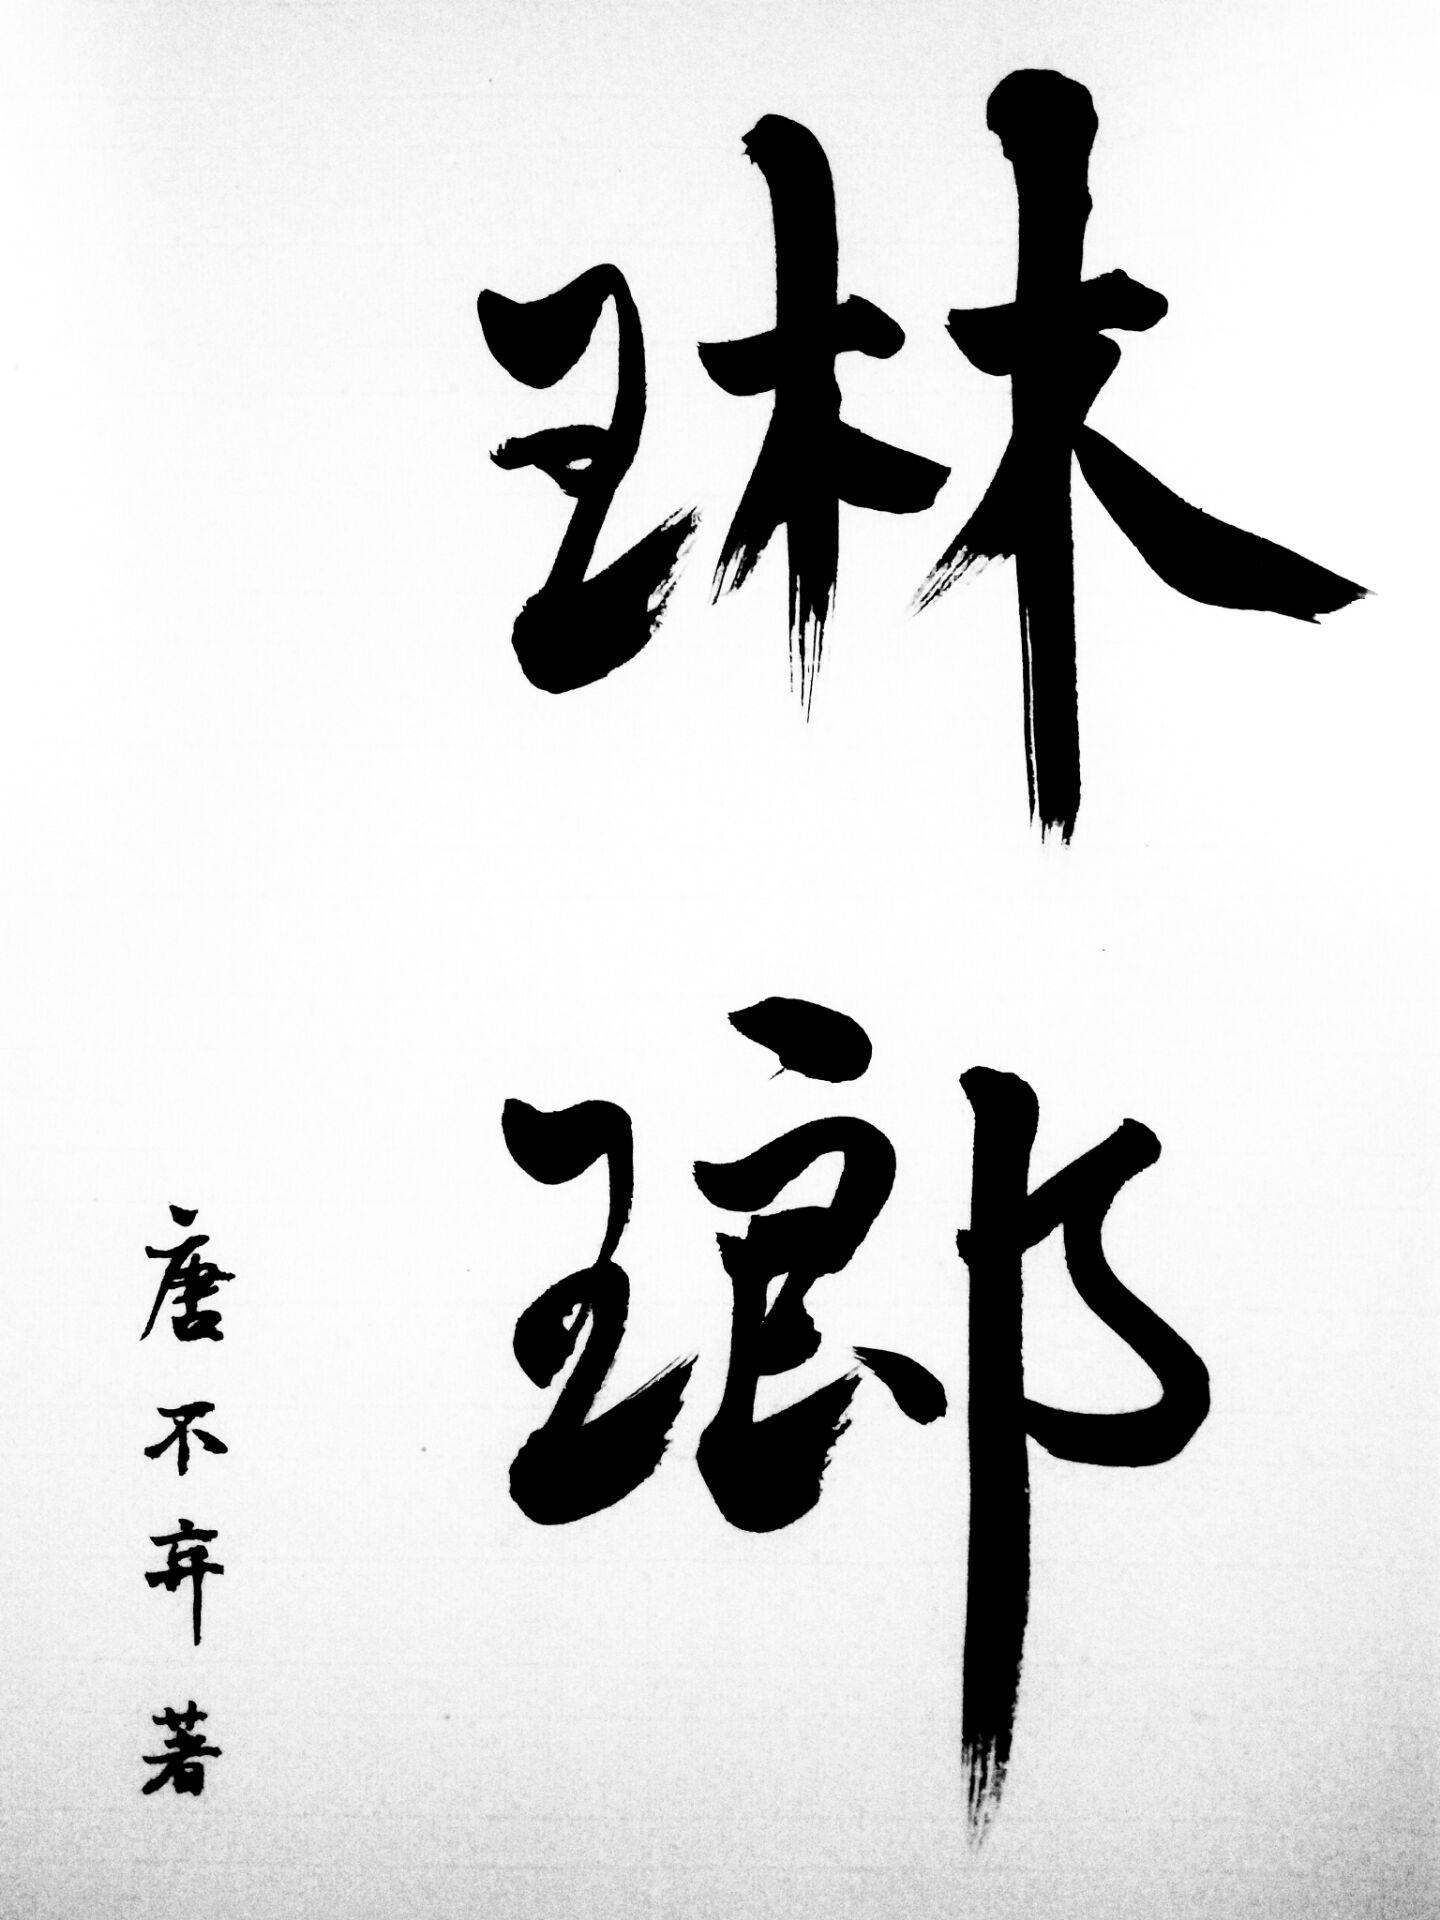 琳瑯
唐不弃著